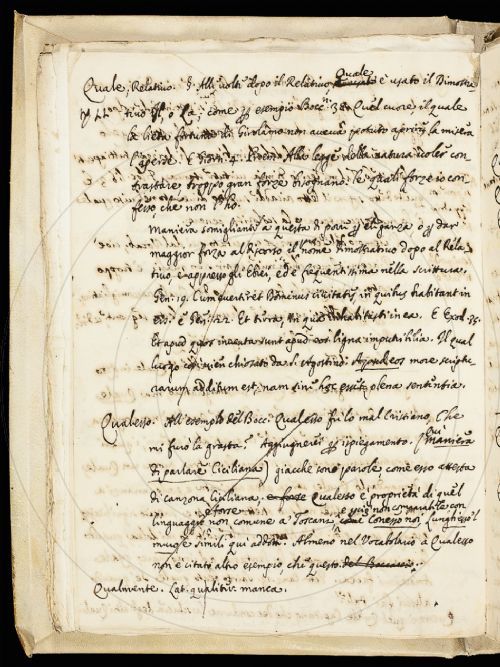 Quale, Relativo. §. Alle volte dopo il Relativo Quale è usato il Dimostra
tivo Il, o La; come p esempio Bocc. 380 Quel cuore il quale
la lieta fortuna di Girolamo non aveva potuto aprire, la misera
l'aperse. E Giorn. 4. Proem. Alle leggi della natura voler con
trastare troppo gran forze bisognano: le quali forze io con
fesso che non l'ho.
Maniera somigliante a questa di porre p eleganza o p dar
maggior forza al discorso il nome dimostrativo dopo al Rela
tivo, è appresso gli Ebrei, ed è frequentissima nella scrittura.
Gen: 19. Cum everteret Dominus civitates in quibus habitant in
eis: e Gen: 12. Et terra, in qua inhabitasti in ea. E Exod: 35.
Et apud quos inventa sunt apud eos ligna imputribilia. Il qual
luogo così vien chiosato da S. Agostino: Apud eos more scriptu
rarum additum est, nam sine hoc esset plena sententia.
Qualesso. All'esempio del Bocc. Qualesso fu lo mal Cristiano, Che
mi furò la grasta? Aggiugnerei p ispiegamento. (qui maniera
di parlare Ciciliana) giacchè sono parole come esso attesta
di canzona Ciciliana. e forse Qualesso è proprietà di quel
linguaggio non comune a Toscana, e quì non comparabile con Lunghesso
e simili qui addotti. Almeno nel Vocabolario a Qualesso
non è citato altro esempio, che questo del Boccaccio.
Qualmente. Lat. qualiter manca.